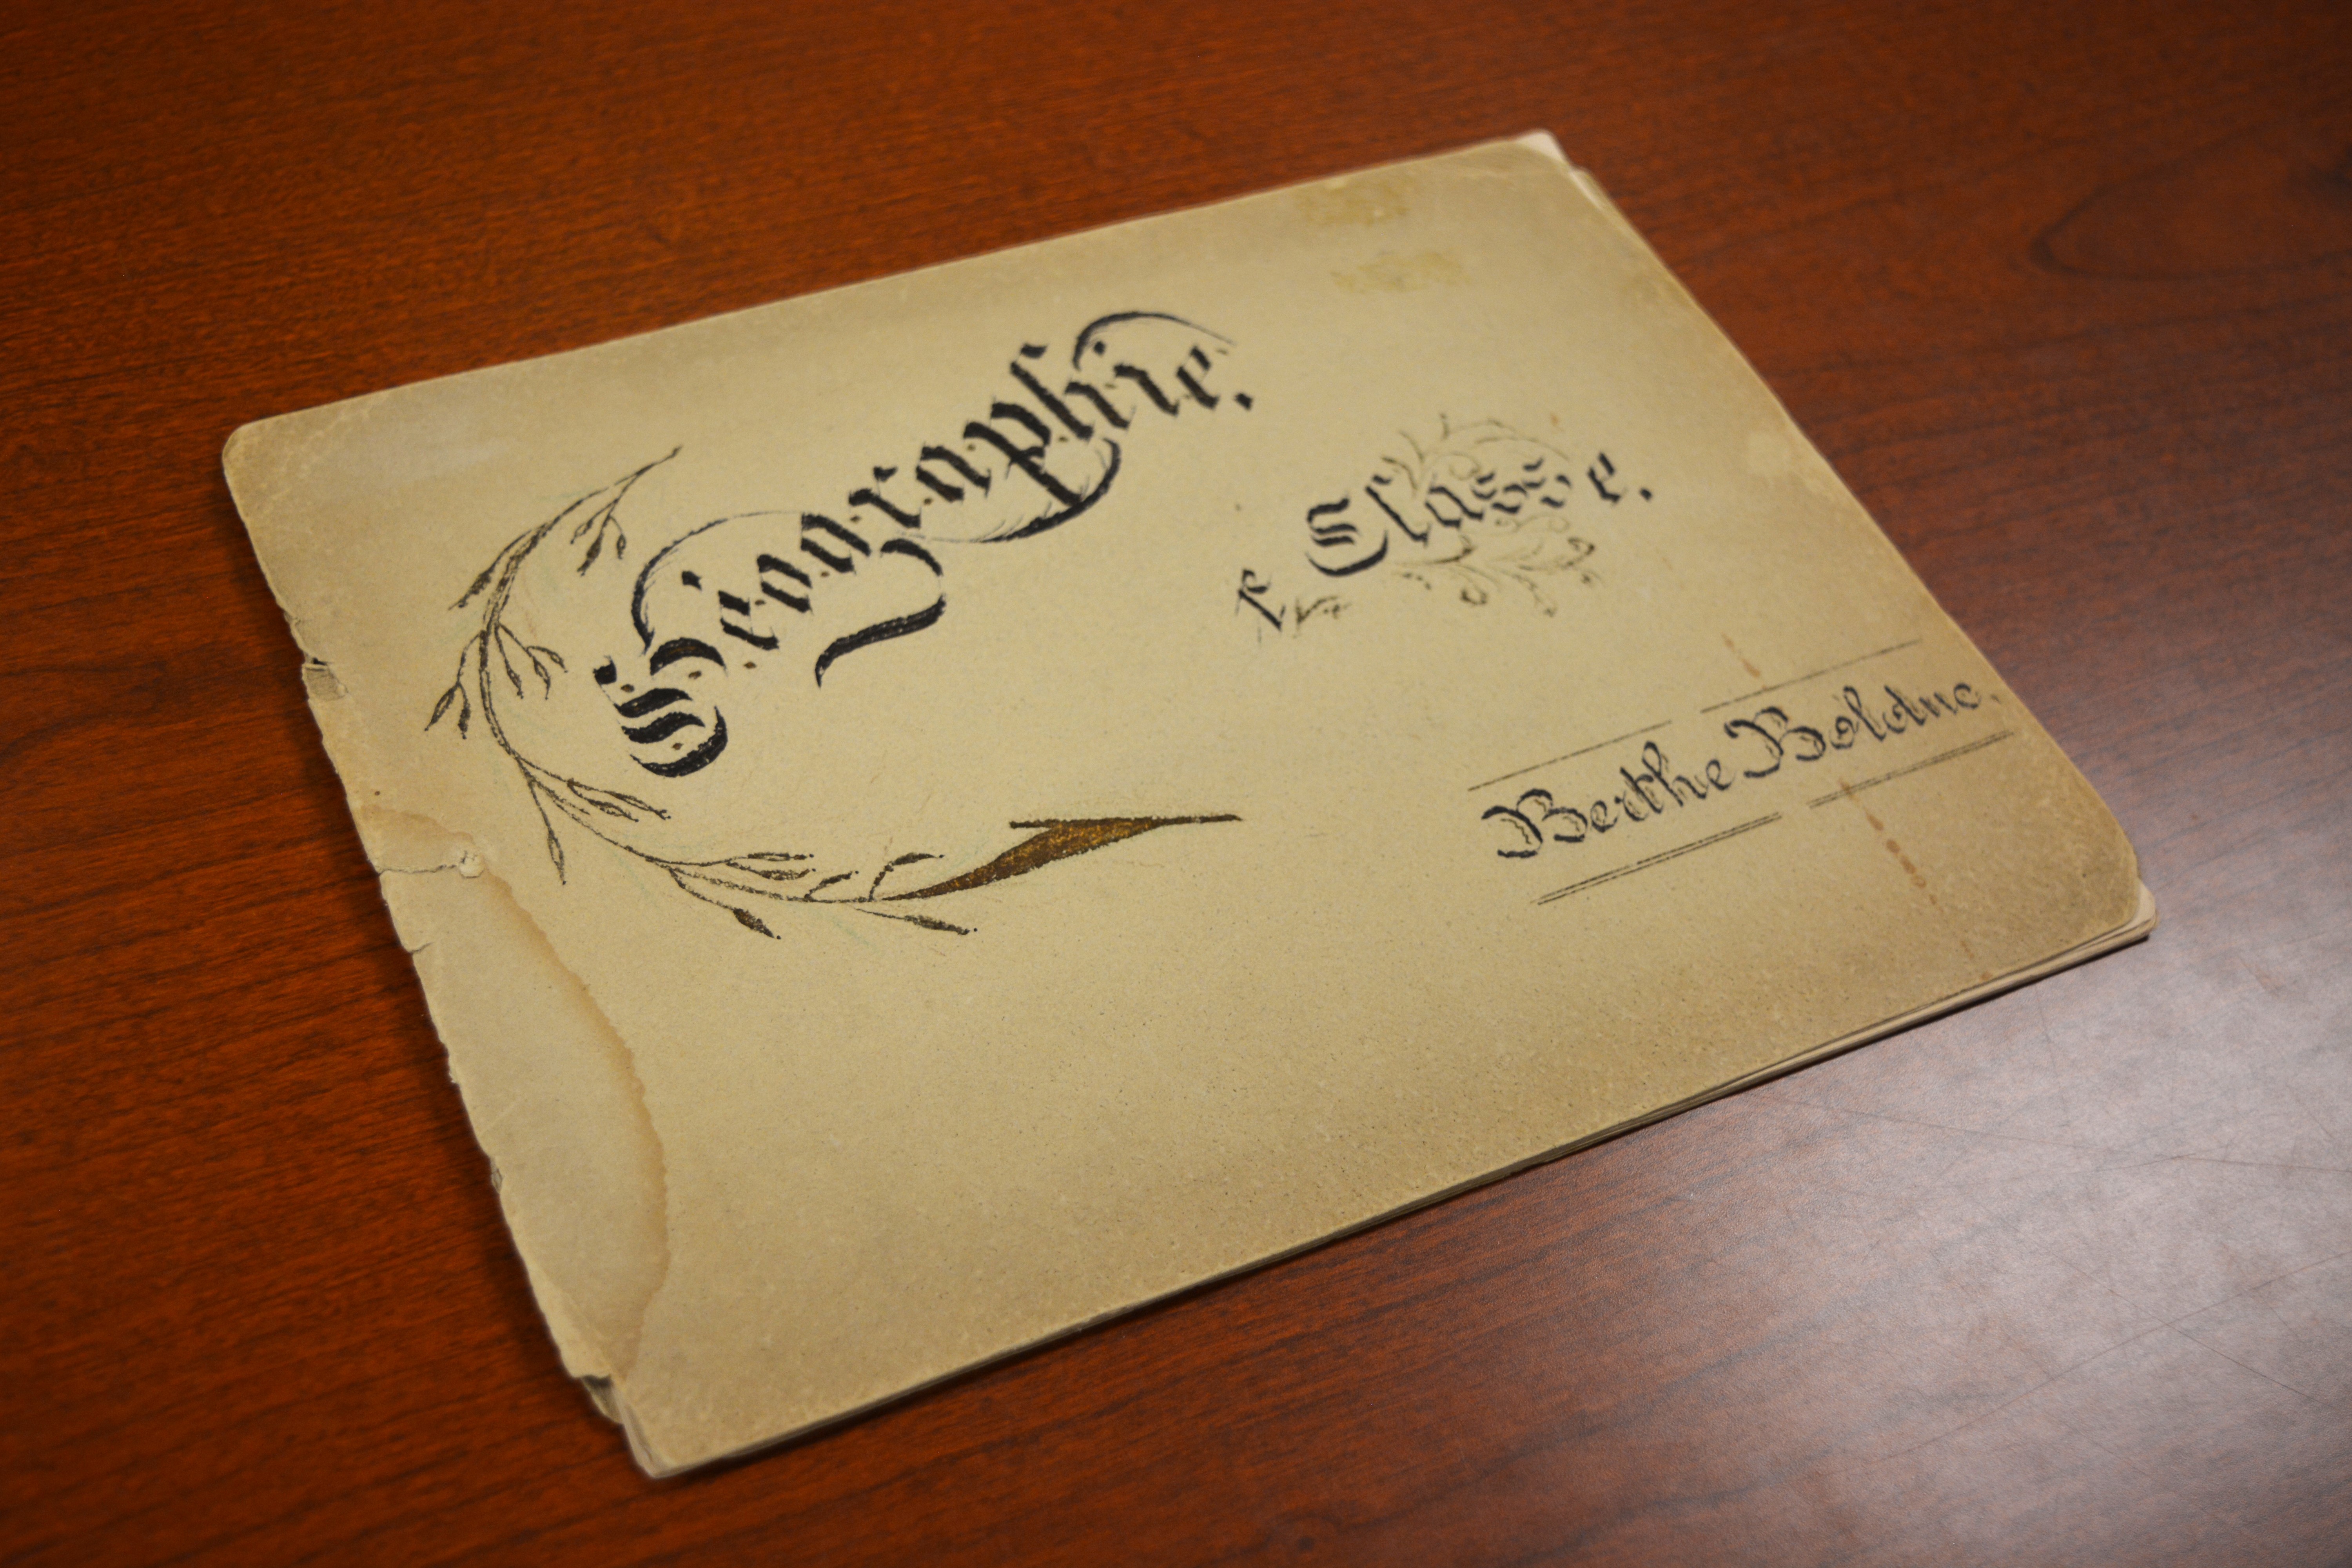 Géographie.
e Classe.
Berthe Bolduc.